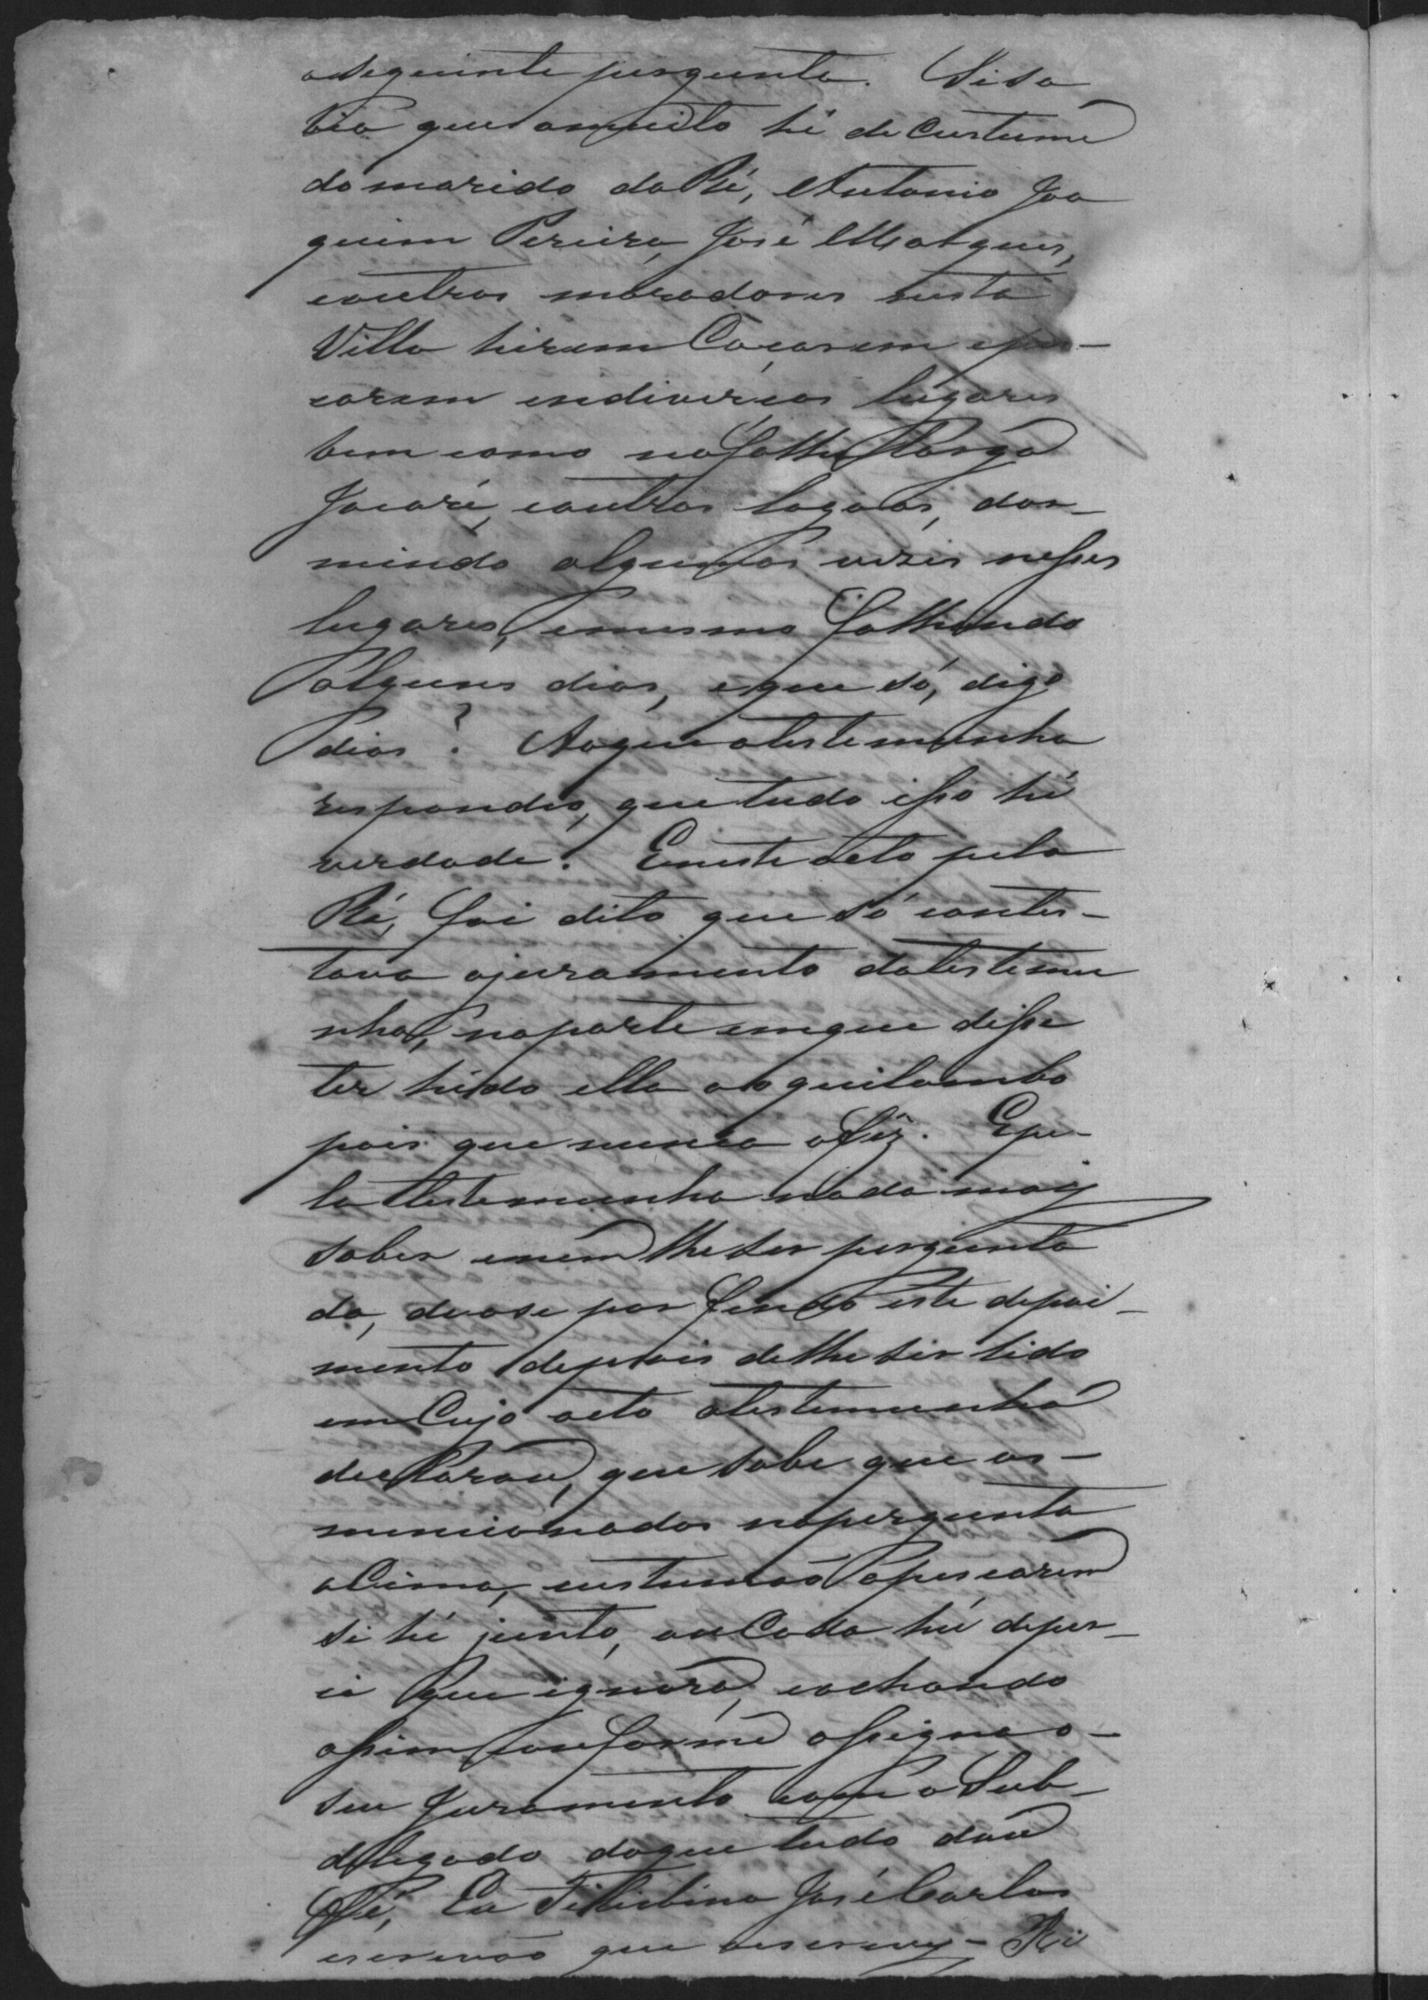 aseguinte pergunta. Sisa
bia que amuito hé de Custume
do marido da Ré, Antonio Joa
quim Pereira, José Marques,
eoutros moradores nesta
Villa hirem Caçarem epes-
carem indiverços lugares
bem como no Folha Larga
Jacaré, eoutras lagoas, dor-
mindo algumas vezes nesses
lugares, emesmo falhando
alguns dias, eque só, digo
dias? Aoque atestemunha
respondeo, que tudo isso hé
verdade. Eneste acto pela
Ré, foi dito que só contes-
tava ojuramento datestemu
nha, naparte emque disse
ter hido ella ao quilombo
pois que nunca ofêz. Epe-
la testemunha nada mais
saber enem lhe ser pergunta
do, deose por findo este depoi-
mento depois delhe ser lido
em Cujo acto atestemunha
declarou, que sabe que os-
mencionados napergunta
aCima, custumão apescarem
si hé junto, ou Cada hú deper
si que ignora, eachando
assim conforme assigna o-
seu juramento com o Sub-
delegado doque tudo dou
Fé, Eu Felisbino José Carlos
escrivão que escrevy - Ri